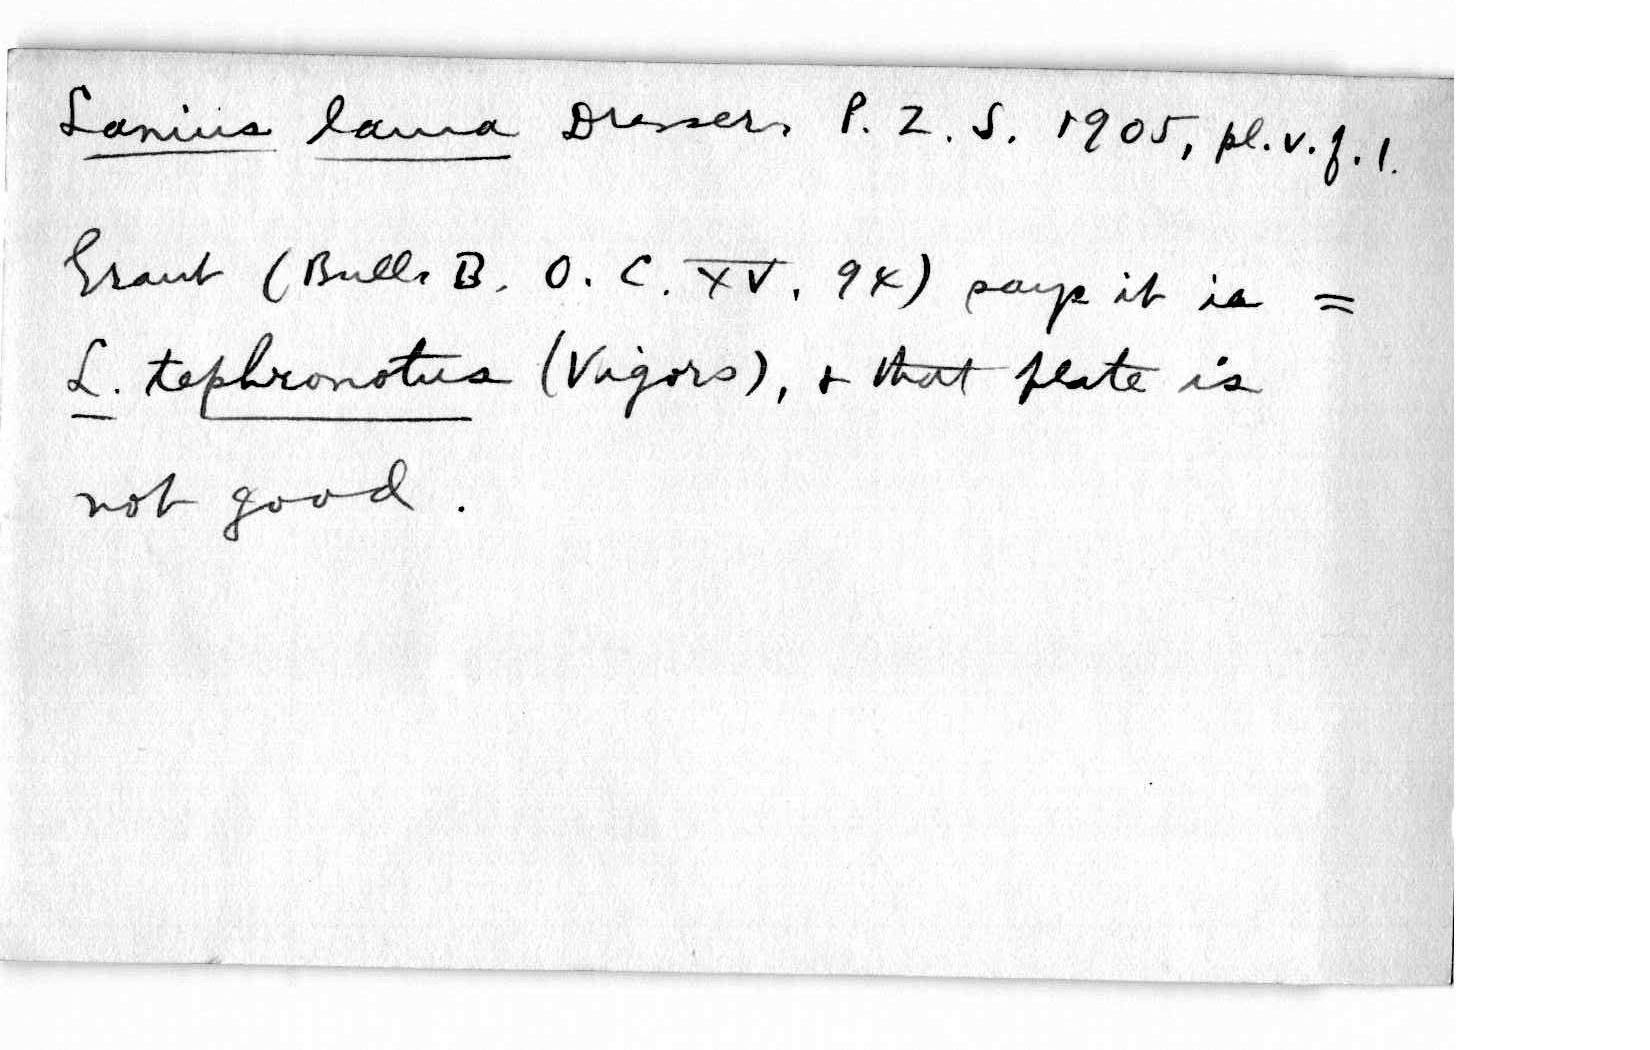 Lanius lama Dresser. P. Z. S. 1905, pl. v. f. 1.
Grant (Bull. B. O. C. XV, 94) says it is =
L. tephronotus (Vigors), + that plate is
not good.